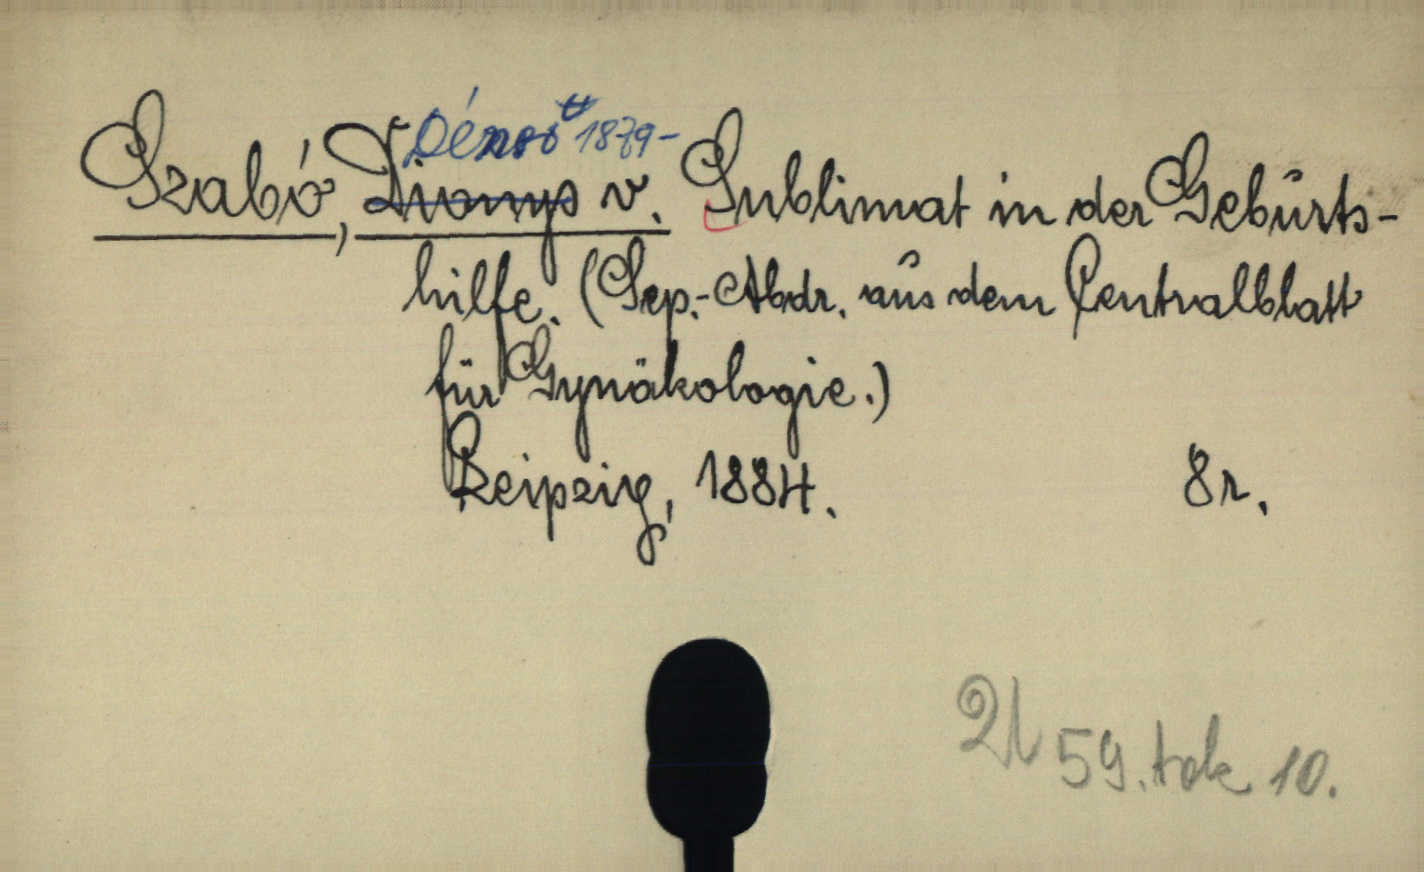 Dénes 1879-
Szabó, Dionys v. Sublimat in der Geburts-
hilfe. (Sep.-Abdr. aus dem Centralblatt
für Gynäkologie.)
Leipzig, 1884. 8r.
59. tok 10.